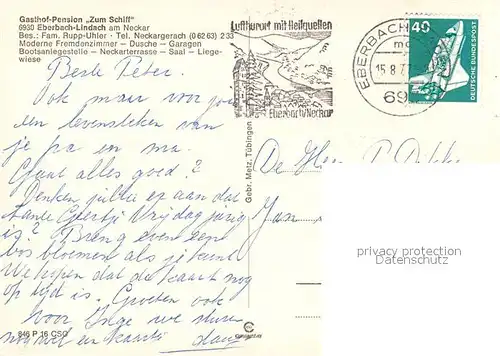 Gasthof-Pension „Zum Schiff"
6930 Eberbach-Lindach am Neckar
Bes.: Fam. Rupp-Uhler - Tel. Neckargerach (06263) 233
Moderne Fremdenzimmer — Dusche — Garagen
Bootsanlegestelle — Neckarterrasse — Saal — Liege-
wiese
Beste Peter.
Ook maar voor jou
een levensteken van
je pa en ma.
Gaat alles goed?
Denken jullie er aan dat
tante Geertje Vrijdag jarig
is? Breng even een
bos bloemen als je kunt
We hopen dat de kaart nog
op tijd is. Groeten ook
voor Inge we sturen
nog wel een kaart
846 P 16 CSO
Gebr. Metz, Tübingen
Luftkurort mit Heilquellen
Eberbach/Neckar
EBERBACH
15.8.7
69
40
DEUTSCHE BUNDESPOST
De Heer P.
Jan
privacy protection
Datenschutz